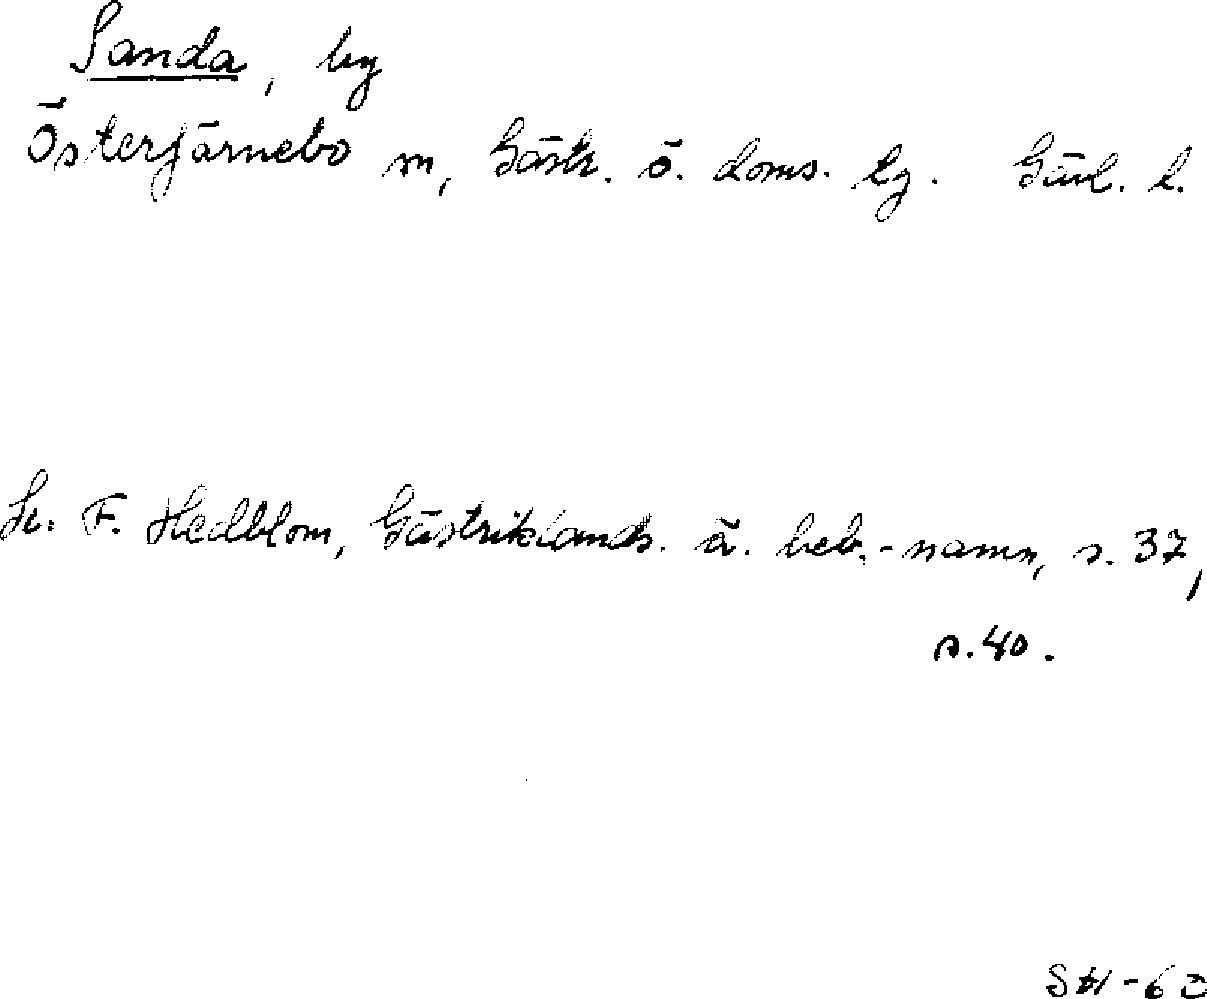 Sanda, by
Österfärnebo sn, Gästr. ö. doms. lg. Gävl. l.
Se: F. Hedblom, Gästriklands. ä. beb.-namn, s. 37,
s. 40.